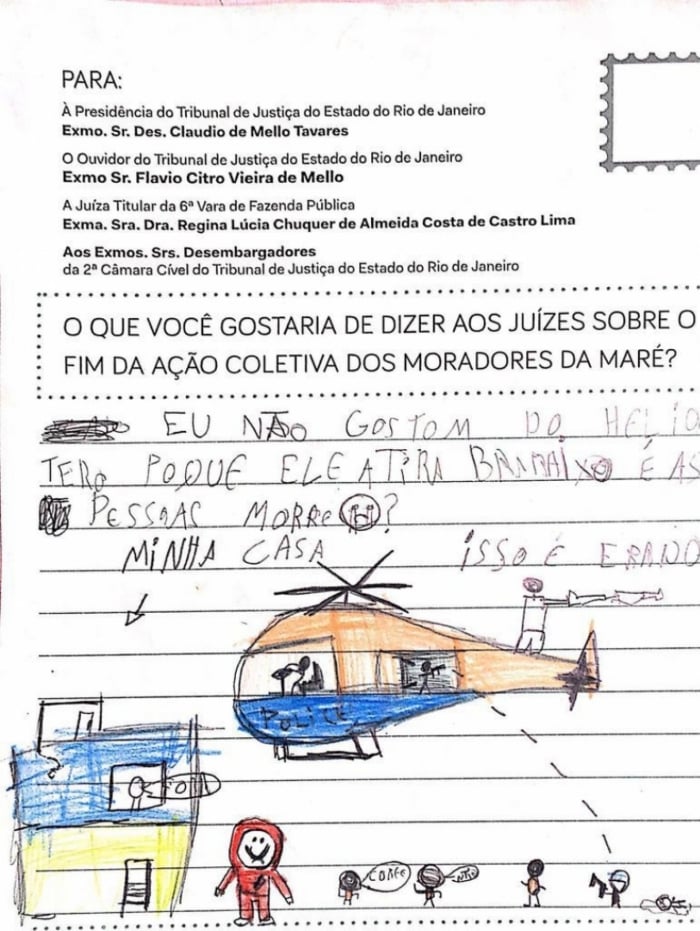 PARA:
À Presidência do Tribunal de Justiça do Estado do Rio de Janeiro
Exmo. Sr. Des. Claudio de Mello Tavares
O Ouvidor do Tribunal de Justiça do Estado do Rio de Janeiro
Exmo Sr. Flavio Citro Vieira de Mello
A Juíza Titular da 6ª Vara de Fazenda Pública
Exma. Sra. Dra. Regina Lúcia Chuquer de Almeida Costa de Castro Lima
Aos Exmos. Srs. Desembargadores
da 2ª Câmara Cível do Tribunal de Justiça do Estado do Rio de Janeiro
O QUE VOCÊ GOSTARIA DE DIZER AOS JUÍZES SOBRE O
FIM DA AÇÃO COLETIVA DOS MORADORES DA MARÉ?
EU NÃO GOSTOM DO HELIO
TERO POQUE ELE ATIRA É AS
PESSOAS MORRE?
MINHA CASA ISSO É ERADO
POLICE
CORRE
NÃO